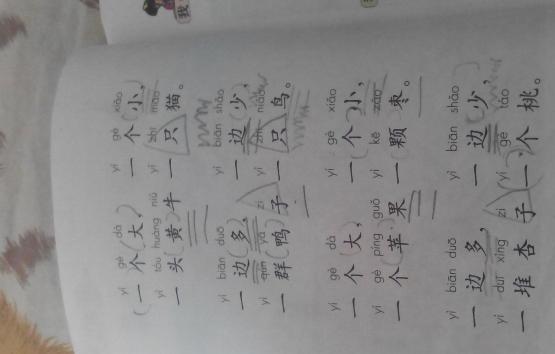 我
yí gè dà yí gè xiǎo
一个大,一个小,
yì tóu huáng niú yì zhī māo
一头黄牛一只猫。
yì biān duō yì biān shǎo
一边多,一边少,
yì qún yā zi yì zhī niǎo
一群鸭子一只鸟。
yí gè dà yí gè xiǎo
一个大,一个小,
yí gè píng guǒ yì kē zǎo
一个苹果一颗枣。
yì biān duō yì biān shǎo
一边多,一边少,
yì duī xìng zi yí gè táo
一堆杏子一个桃。